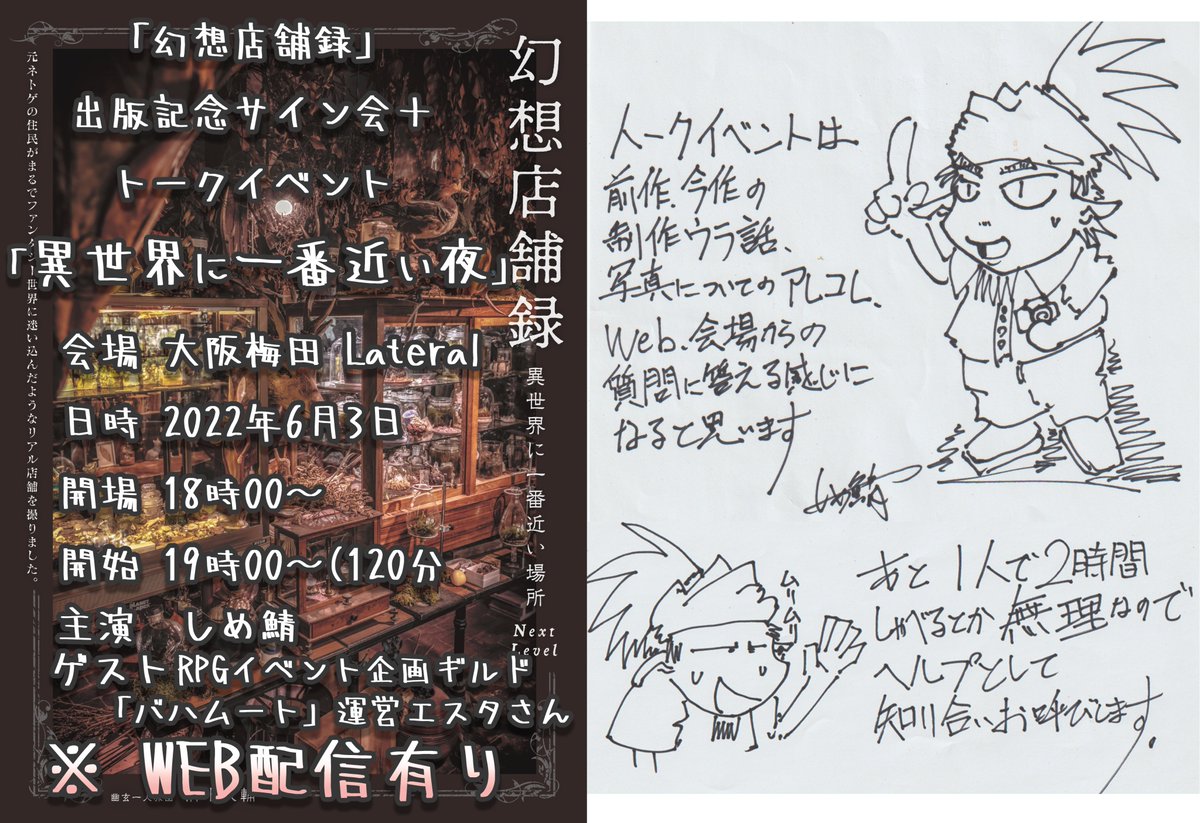 「幻想店舗録」
出版記念サイン会＋
トークイベント
「異世界に一番近い夜」
会場 大阪梅田 Lateral
日時 2022年6月3日
開場 18時00〜
開始 19時00〜(120分
主演 しめ鯖
ゲスト RPGイベント企画ギルド
「バハムート」運営エスタさん
※ WEB配信有り
幻想店舗録
異世界に一番近い場所
Next
Level
元ネトゲの住民がまるでファンタジー世界に迷い込んだようなリアル店舗を撮りました。
幽玄一人旅団
トークイベントは
前作、今作の
制作ウラ話、
写真についてのアレコレ、
Web、会場からの
質問に答える感じに
なると思います
しめ鯖
ムリムリ
あと1人で2時間
しゃべるとか無理なので
ヘルプとして
知り合いお呼びします。